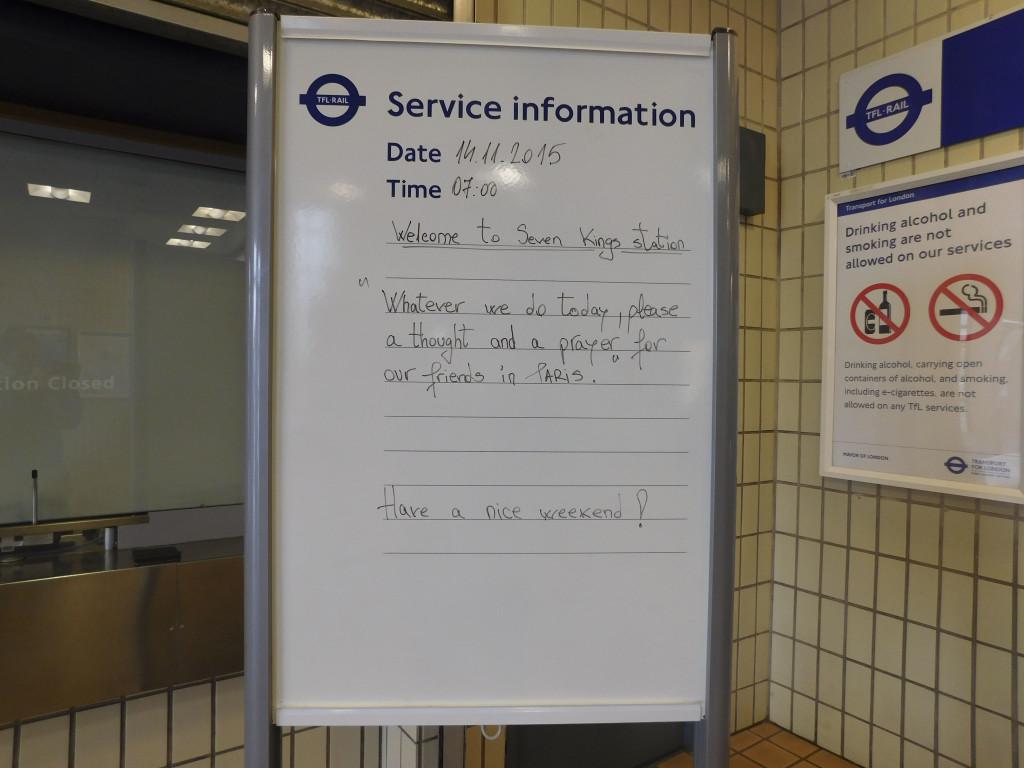 TFL-RAIL
Service information
Date 14.11.2015
Time 07:00
Welcome to Seven Kings station
" Whatever we do today, please
a thought and a prayer" for
our friends in PARIS.
Have a nice weekend!
tion Closed
TFL-RAIL
Transport for London
Drinking alcohol and
smoking are not
allowed on our services
Drinking alcohol, carrying open
containers of alcohol, and smoking,
including e-cigarettes, are not
allowed on any TfL services.
MAYOR OF LONDON
TRANSPORT
FOR LONDON